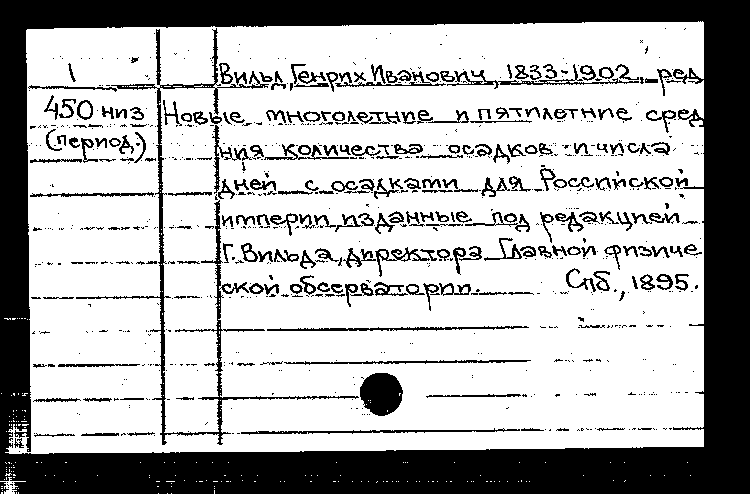 1 Вильд, Генрих Иванович, 1833-1902, ред
450 низ Новые многолетние и пятилетние сред
(период.) ния количества осадков и числа
дней с осадками для Российской
империи, изданные под редакцией
Г. Вильда, директора Главной физиче
ской обсерватории. Спб., 1895.